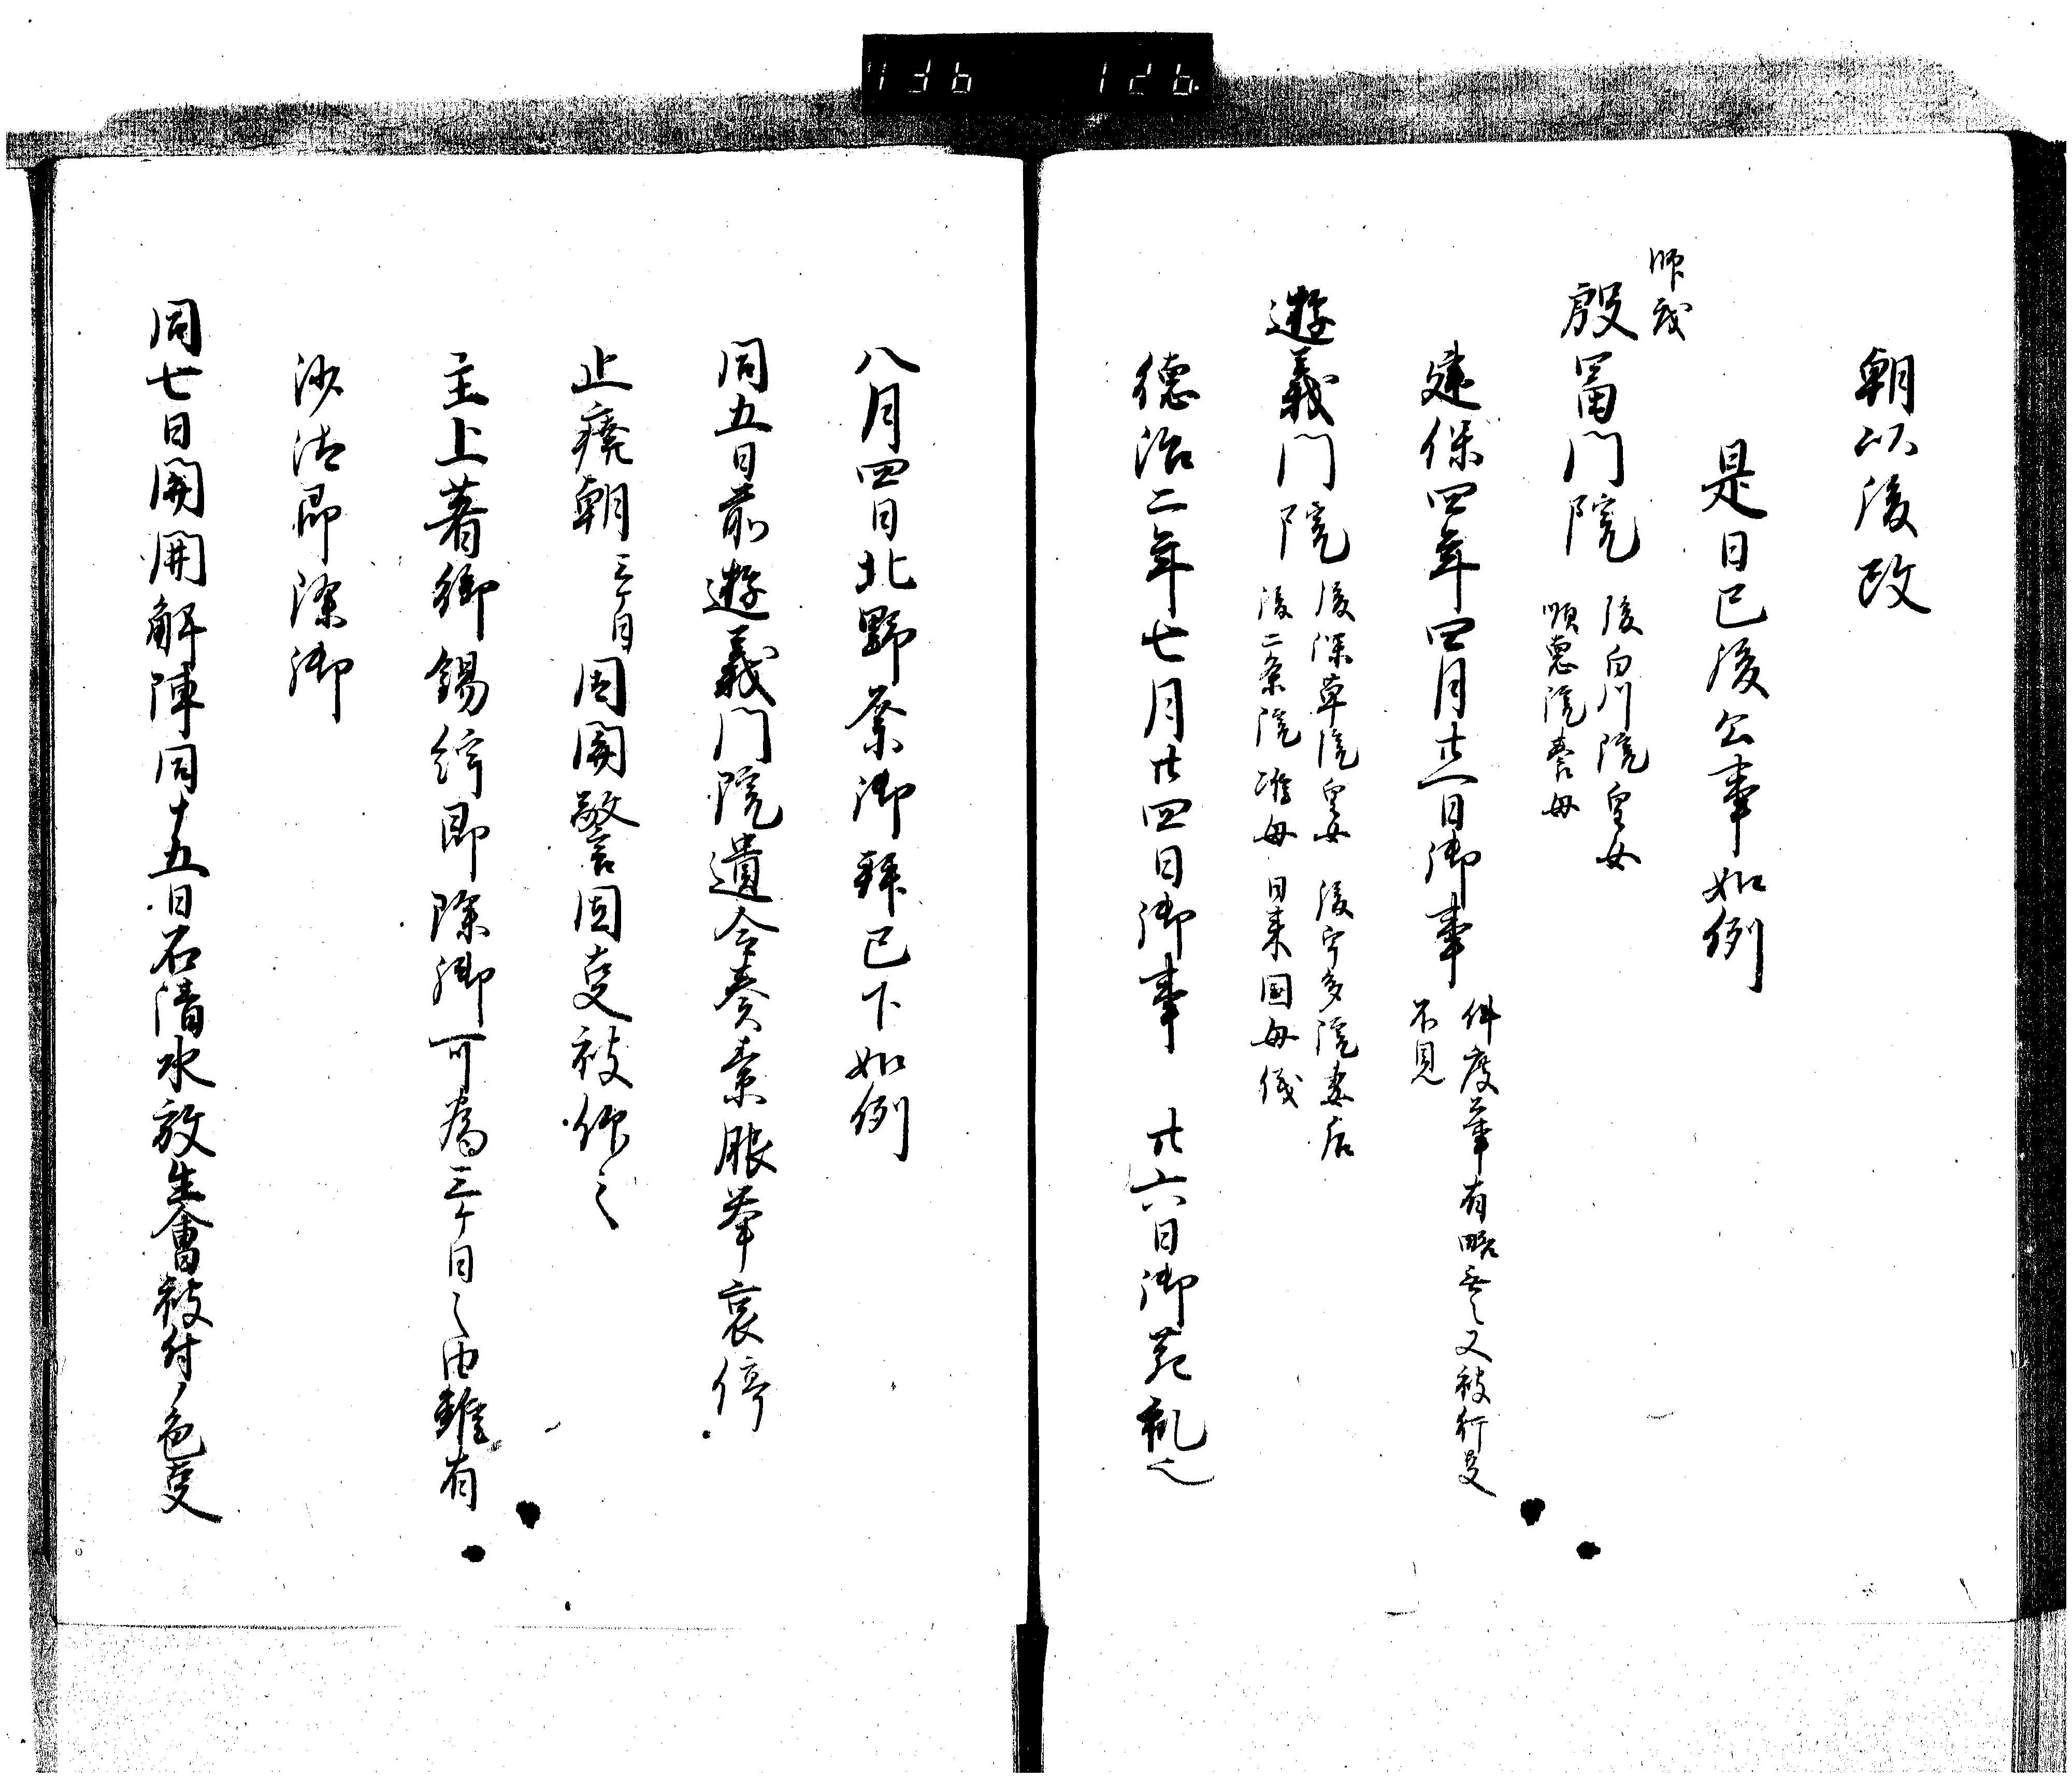 朝以後改
是日已後公事如例
師或
殷冨門院 後白川院皇女
順徳院養母
建保四年四月廿一日御事 件度薨有略
不見
又被行叓
遊義門院 後深草院皇女 後宇多院妻后
後二条院准母 日来国母儀
徳治二年七月廿四日御事 廿六日御葬礼也
八月四日北野祭御拜已下如例
同五日前遊義門院遺令奏素服挙哀停
止癈朝三ケ日固関警固叓被仰之
主上著御錫紵即除御可為三ケ日之由雖有
沙汰即除御
同七日開関解陣同十五日石清水放生會被付ノ色叓
136 126